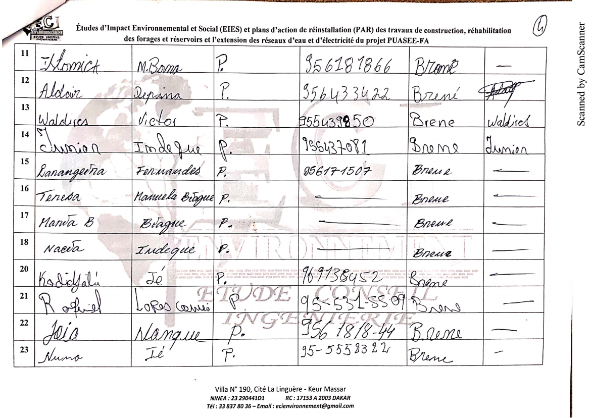 Études d'Impact Environnemental et Social (EIES) et plans d'action de réinstallation (PAR) des travaux de construction, réhabilitation
des forages et réservoirs et l'extension des réseaux d'eau et d'électricité du projet PUASEE-FA
11 P. 956181866 Brené —
12 Aldair P. 956433422 Brené
13 Waldires Victor P. 955439850 Brene Waldires
14 Junior Indeque P. 956437081 Brene Junior
15 Fernandes P. 956171507 Brene —
16 Teresa Manuela Biague P. — Brene —
17 Maria B Biague P. — Brene —
18 Indeque P. — Brene
20 P. 969138952 Brene —
21 Raquel Lopes P 95-531-5509 Brene —
22 João Nanque P. 956 1818-44 Brene —
23 Nuno Ié P. 95-5558322 Brene —
ENVIRONNEMENT
ETUDE CONSEIL
INGENIERIE
Villa N° 190, Cité La Linguère - Keur Massar
NINEA : 23 29044101 RC : 17153 A 2003 DAKAR
Tél : 33 837 80 26 – Email : ecienvironnement@gmail.com
Scanned by CamScanner